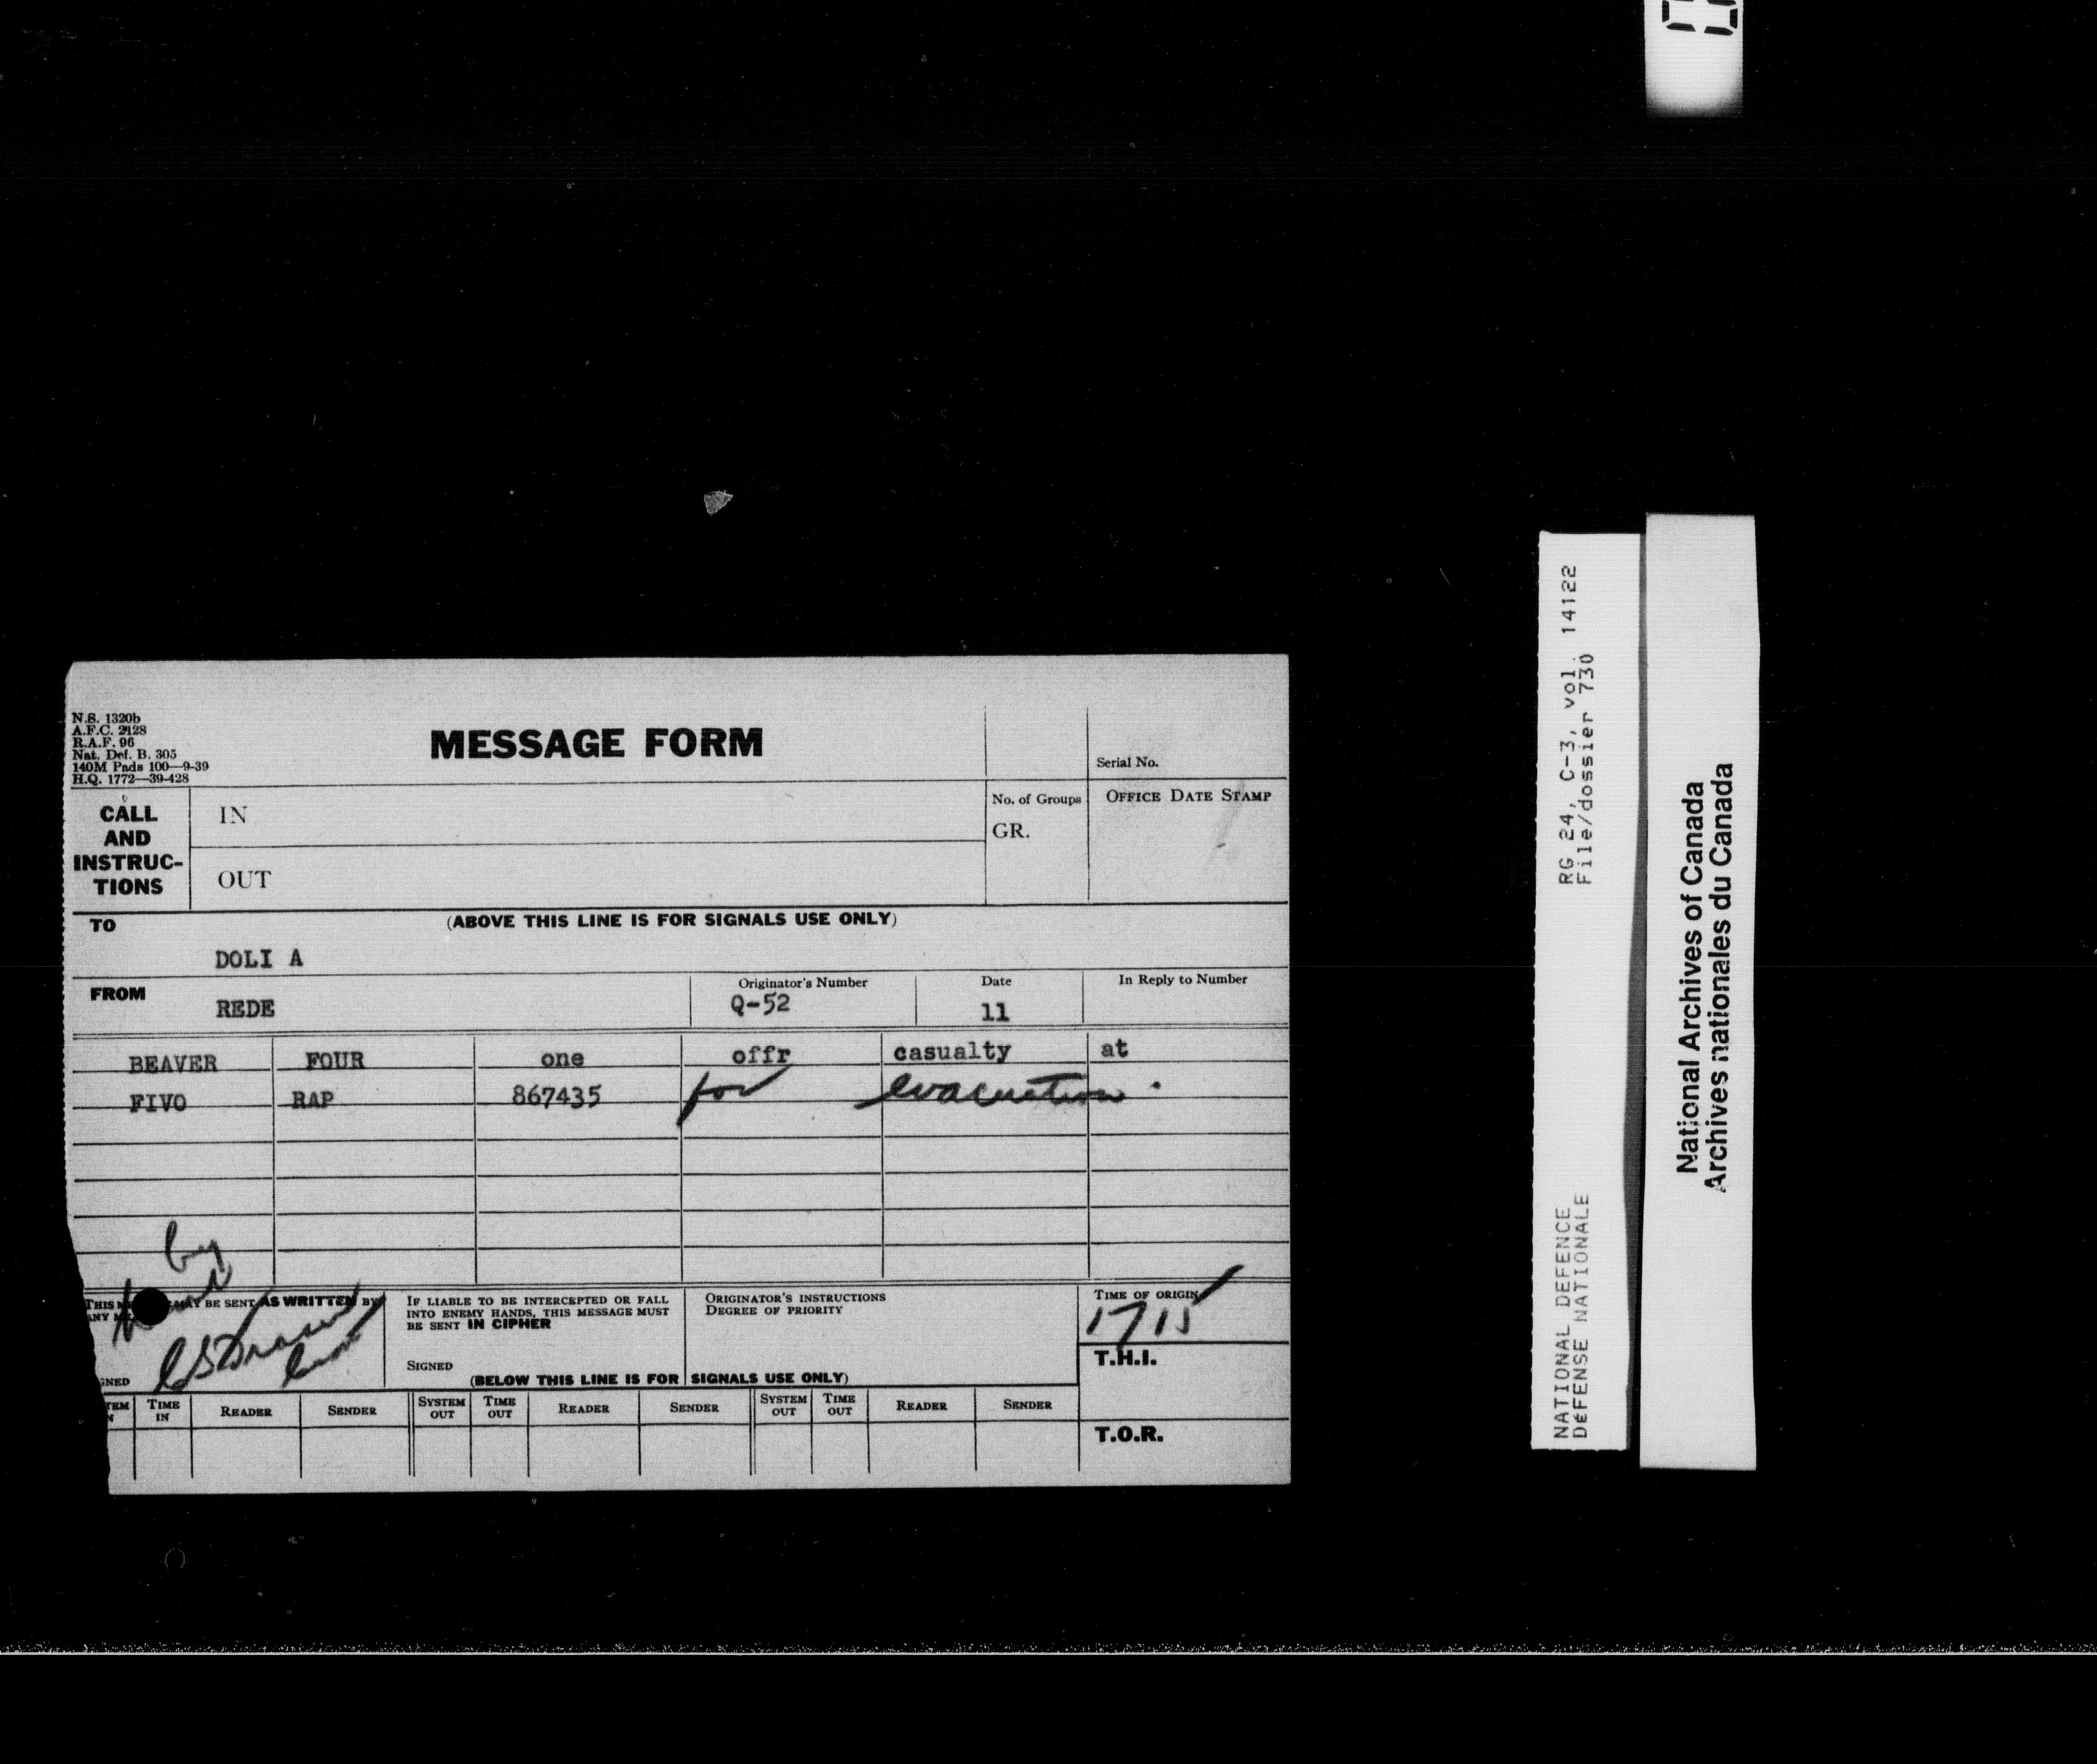 N.S. 1320b
A.F.C. 2128
R.A.F. 96
Nat. Def. B. 305
140M Pads 100—9-39
H.Q. 1772—39-428
MESSAGE FORM
Serial No.
CALL AND INSTRUC-TIONS
IN
OUT
No. of Groups
GR.
OFFICE DATE STAMP
(ABOVE THIS LINE IS FOR SIGNALS USE ONLY)
TO
DOLI A
FROM
REDE
Originator's Number
Q-52
Date
11
In Reply to Number
BEAVER FOUR one offr casualty at
FIVO RAP 867435 for evacuation.
by
THIS MAY BE SENT AS WRITTEN BY
ANY
IF LIABLE TO BE INTERCEPTED OR FALL
INTO ENEMY HANDS, THIS MESSAGE MUST
BE SENT IN CIPHER
SIGNED
ORIGINATOR'S INSTRUCTIONS
DEGREE OF PRIORITY
TIME OF ORIGIN
1715
T.H.I.
(BELOW THIS LINE IS FOR SIGNALS USE ONLY)
TIME IN READER SENDER SYSTEM OUT TIME OUT READER SENDER SYSTEM OUT TIME OUT READER SENDER
T.O.R.
RG 24, C-3, vol. 14122
File/dossier 730
NATIONAL DEFENCE
DéFENSE NATIONALE
National Archives of Canada
Archives nationales du Canada